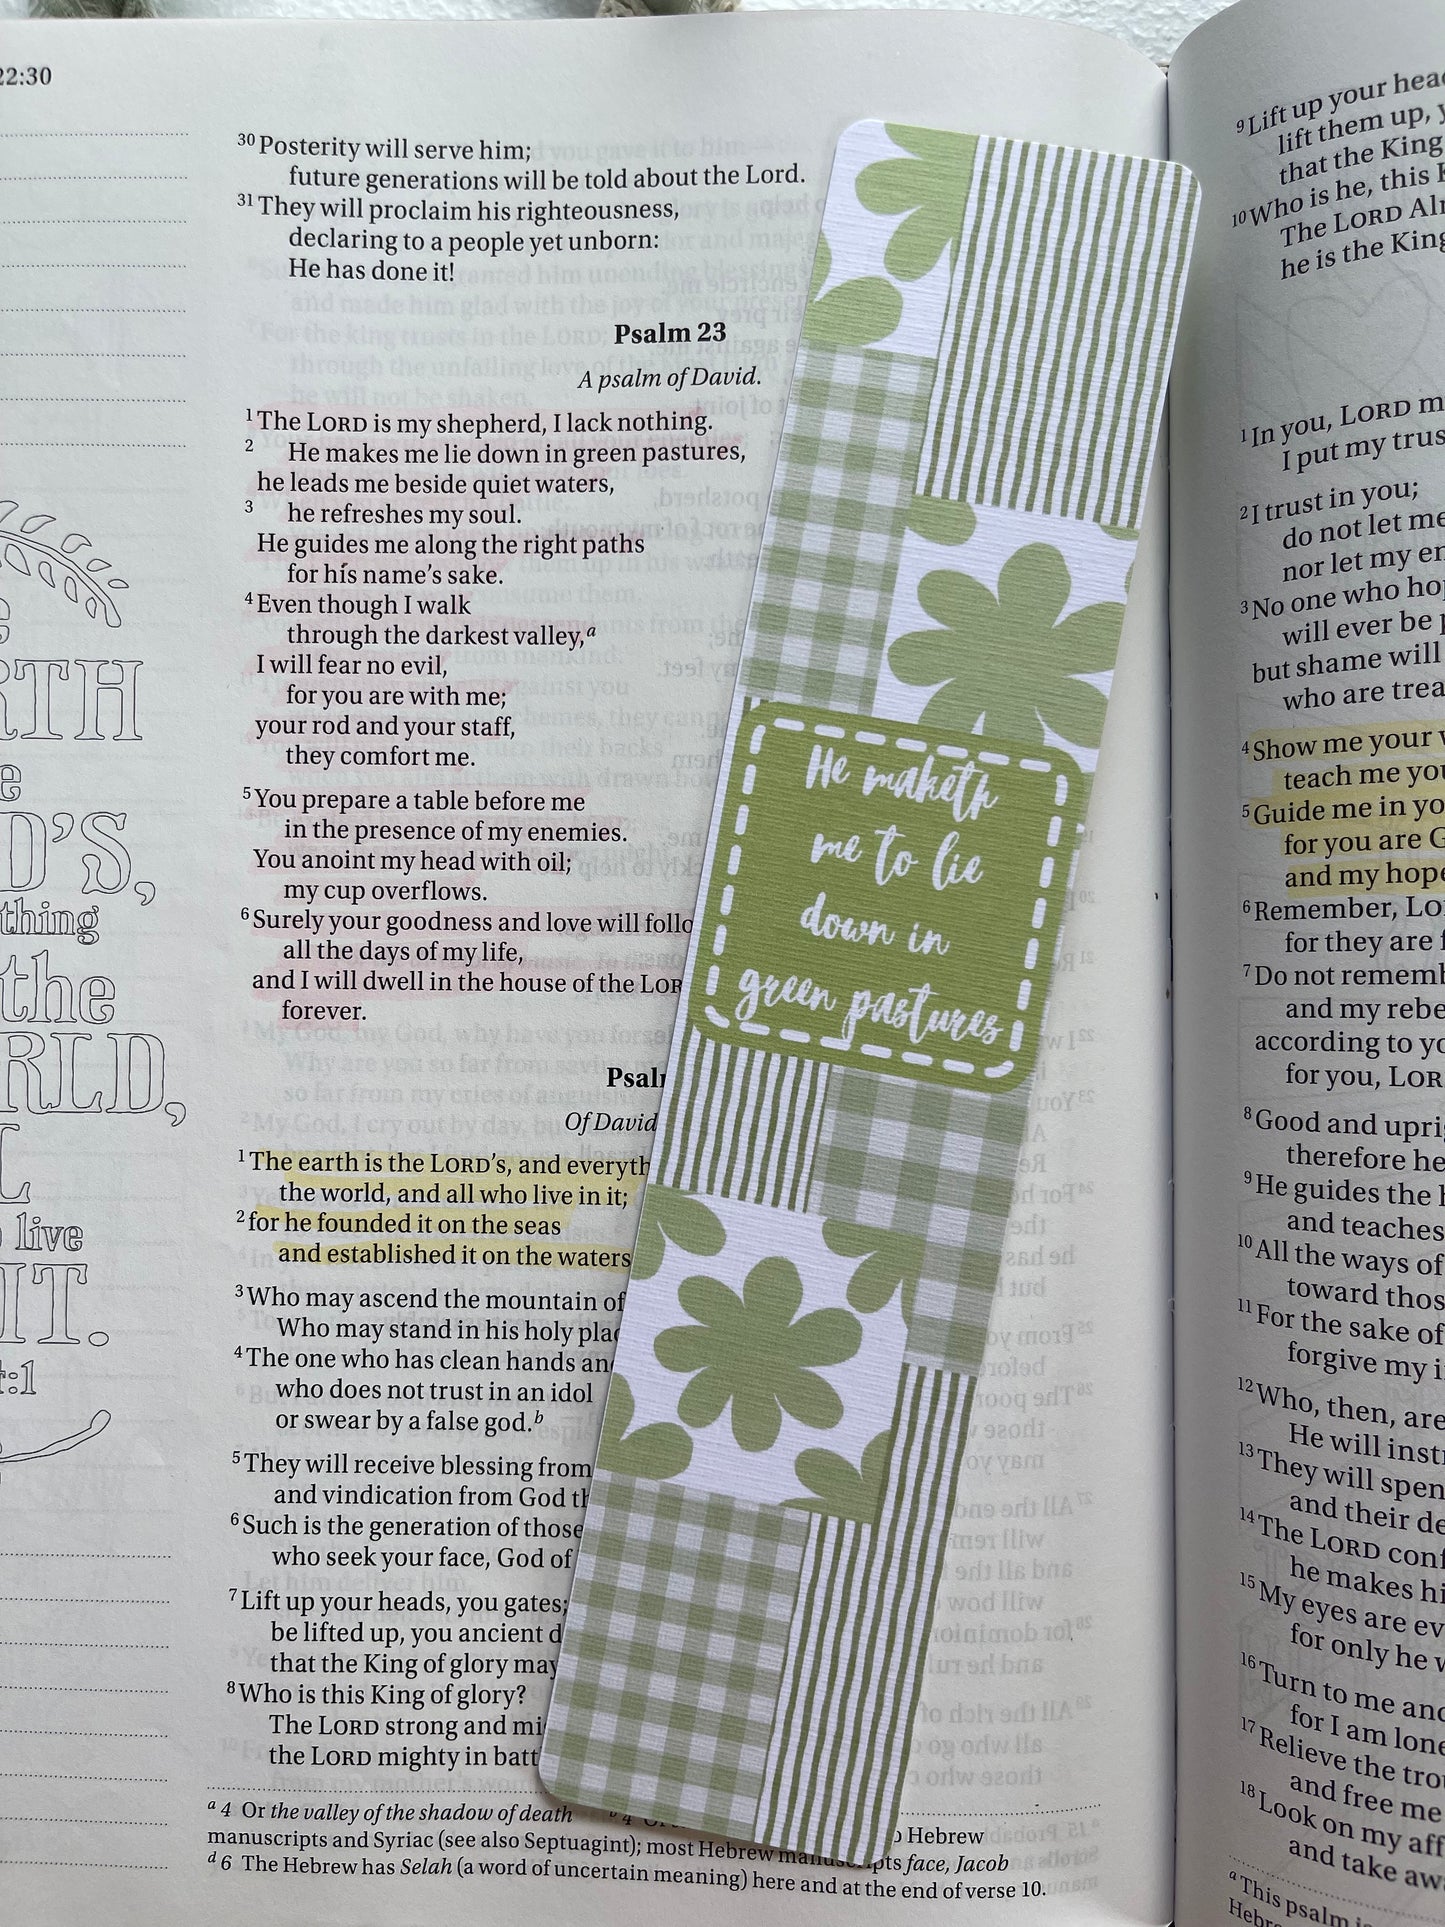 22:30
30 Posterity will serve him;
future generations will be told about the Lord.
31 They will proclaim his righteousness,
declaring to a people yet unborn:
He has done it!
Psalm 23
A psalm of David.
1 The LORD is my shepherd, I lack nothing.
2 He makes me lie down in green pastures,
he leads me beside quiet waters,
3 he refreshes my soul.
He guides me along the right paths
for his name's sake.
4 Even though I walk
through the darkest valley,a
I will fear no evil,
for you are with me;
your rod and your staff,
they comfort me.
5 You prepare a table before me
in the presence of my enemies.
You anoint my head with oil;
my cup overflows.
6 Surely your goodness and love will follo
all the days of my life,
and I will dwell in the house of the LOR
forever.
Psal
Of David
1 The earth is the LORD's, and everyth
the world, and all who live in it;
2 for he founded it on the seas
and established it on the waters
3 Who may ascend the mountain of
Who may stand in his holy plac
4 The one who has clean hands an
who does not trust in an idol
or swear by a false god.b
5 They will receive blessing from
and vindication from God th
6 Such is the generation of those
who seek your face, God of
7 Lift up your heads, you gates;
be lifted up, you ancient d
that the King of glory may
8 Who is this King of glory?
The LORD strong and mi
the LORD mighty in batt
a 4 Or the valley of the shadow of death b 4
Hebrew
manuscripts and Syriac (see also Septuagint); most Hebrew manuscripts face, Jacob
d 6 The Hebrew has Selah (a word of uncertain meaning) here and at the end of verse 10.
He maketh
me to lie
down in
green pastures
RTH
D'S,
thing
the
RLD,
L
live
IT.
:1
9 Lift up your head
lift them up, y
that the King
10 Who is he, this K
The LORD Alm
he is the King
1 In you, LORD m
I put my trus
2 I trust in you;
do not let me
nor let my en
3 No one who hop
will ever be p
but shame will
who are trea
4 Show me your w
teach me you
5 Guide me in yo
for you are G
and my hope
6 Remember, LO
for they are f
7 Do not rememb
and my rebe
according to yo
for you, LOR
8 Good and upri
therefore he
9 He guides the h
and teaches
10 All the ways of
toward thos
11 For the sake of
forgive my i
12 Who, then, are
He will instr
13 They will spen
and their de
14 The LORD conf
he makes hi
15 My eyes are ev
for only he w
16 Turn to me and
for I am lone
17 Relieve the tro
and free me
18 Look on my aff
and take aw
a This psalm i
Hebre